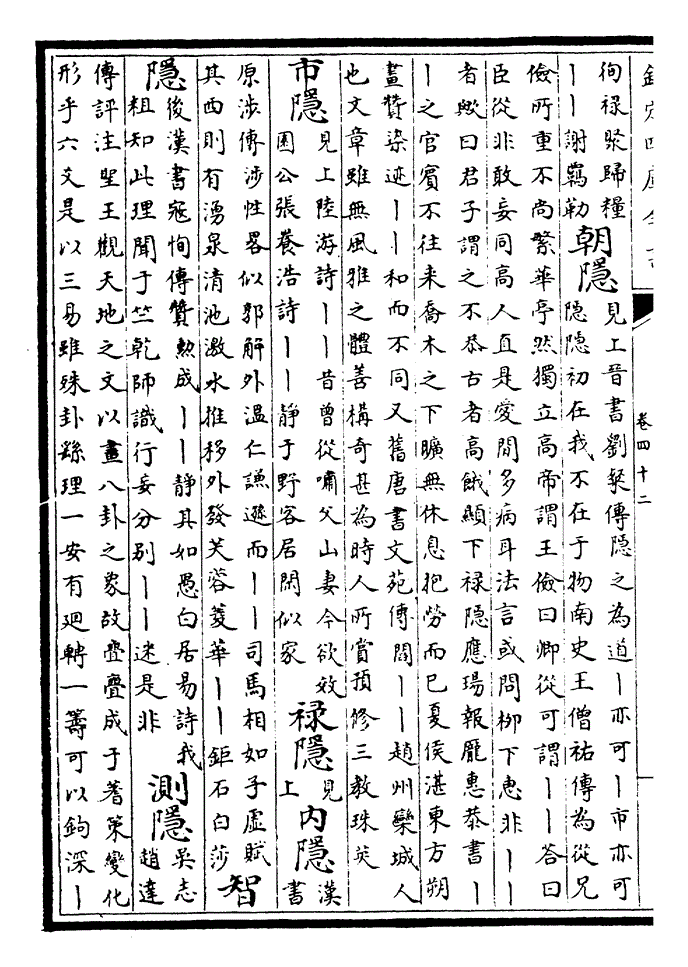 欽定四庫全書 卷四十二
徇禄聚歸糧
丨丨謝羈勒
朝隱
見上晉書劉粲傳隱之為道丨亦可丨市亦可
隱隱初在我不在于物南史王僧祐傳為從兄
儉所重不尚繁華亭然獨立高帝謂王儉曰卿從可謂丨丨荅曰
臣從非敢妄同高人直是愛閒多病耳法言或問柳下惠非丨丨
者歟曰君子謂之不恭古者高餓顯下禄隱應瑒報龎惠恭書丨
丨之官賓不往来喬木之下曠無休息抱勞而已夏侯湛東方朔
畫贊染迹丨丨和而不同又舊唐書文苑傳閻丨丨趙州欒城人
也文章雖無風雅之體善構奇甚為時人所賞預修三教珠英
市隱
見上陸游詩丨丨昔曾從嘯父山妻今欲效
園公張養浩詩丨丨静于野客居閑似家
禄隱
見上
内隱
漢書
原涉傳涉性畧似郭解外温仁謙遜而丨丨司馬相如子虚賦
其西則有湧泉清池激水推移外發芙蓉蔆華丨丨鉅石白莎
智
隱
後漢書寇恂傳贊勲成丨丨静其如愚白居易詩我
粗知此理聞于竺乾師識行妄分别丨丨迷是非
測隱
吳志
趙達
傳評注聖王觀天地之文以畫八卦之象故亹亹成于蓍策變化
形乎六爻是以三易雖殊卦繇理一安有廻轉一籌可以鉤深丨